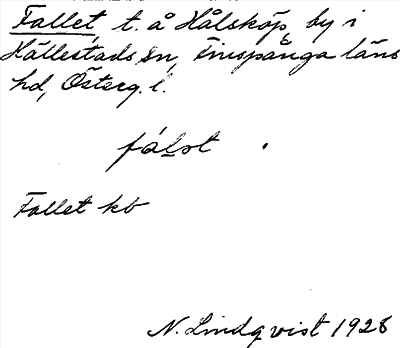 Fallet t. å Hålsköp by i
Hällestads sn, Finspånga läns
hd, Österg. l.
fálst .
Fallet kb
N. Lindqvist 1928